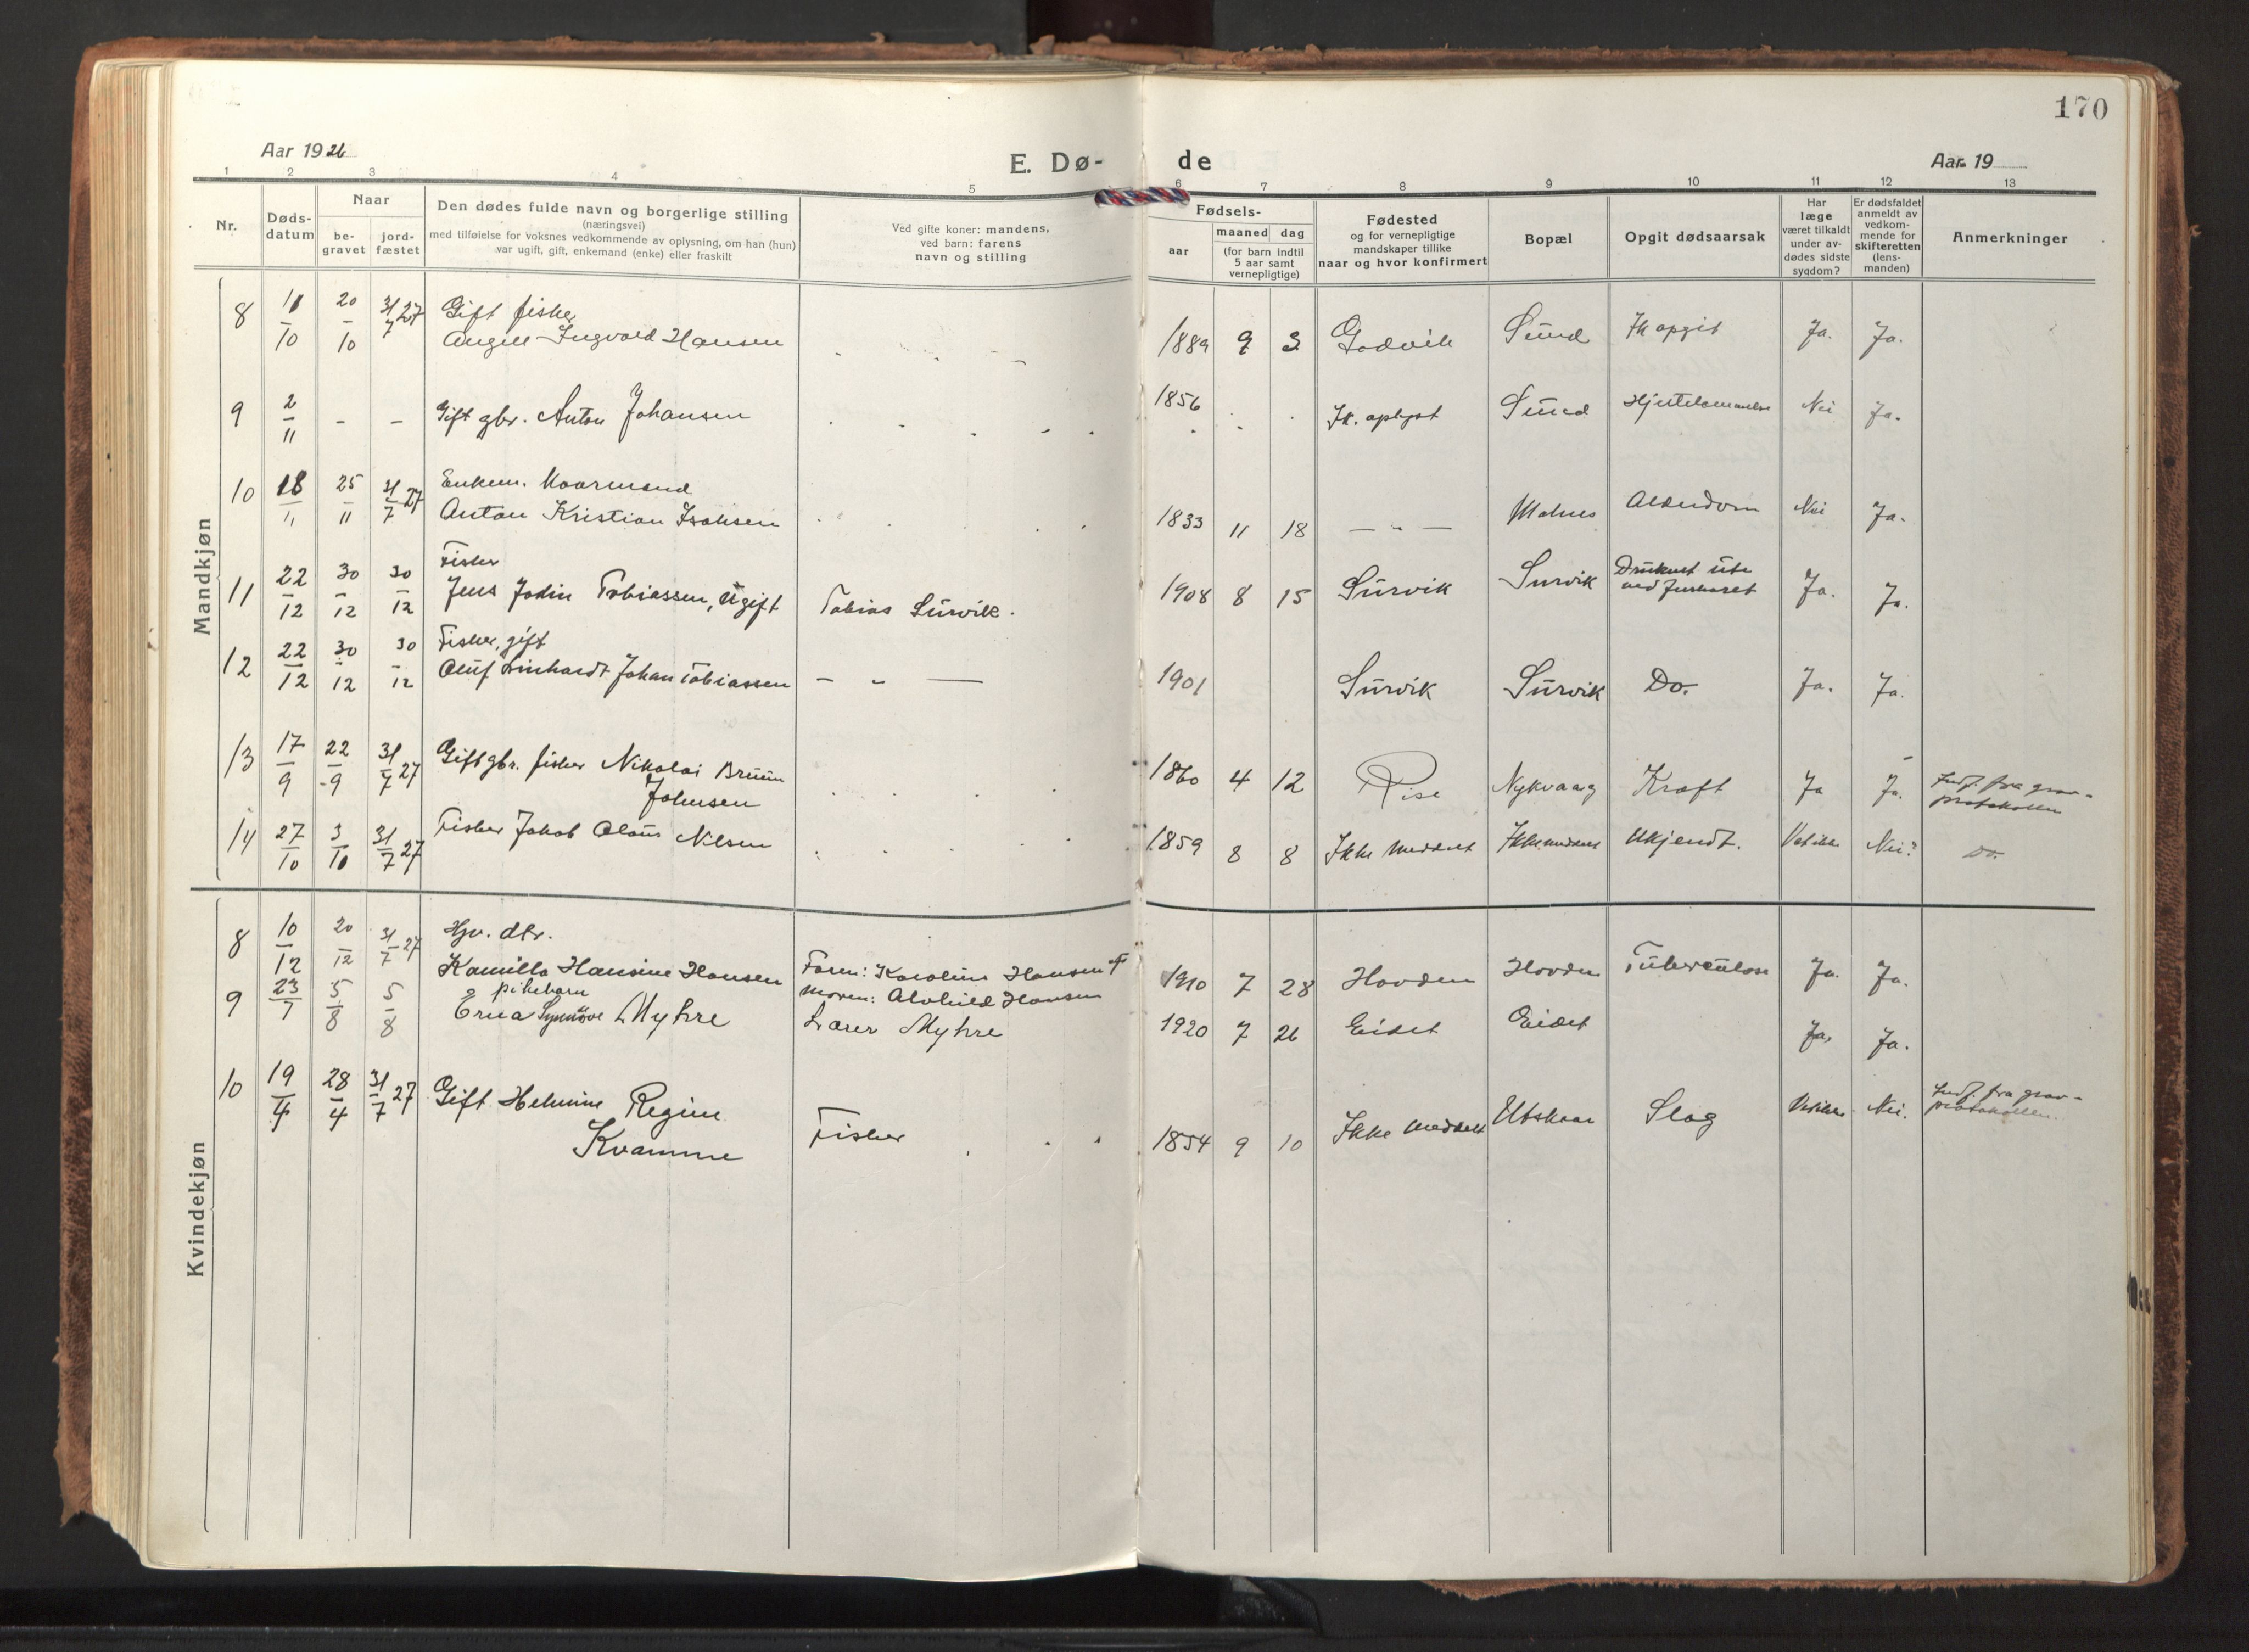 170
Aar 1926
E. Dø-
de
Aar 19
1 2 3 4 5 6 7 8 9 10 11 12 13
Nr.
Døds-
datum
Naar
be-
gravet
jord-
fæstet
Den dødes fulde navn og borgerlige stilling
(næringsvei)
med tilføielse for voksnes vedkommende av oplysning, om han (hun)
var ugift, gift, enkemand (enke) eller fraskilt
Ved gifte koner: mandens,
ved barn: farens
navn og stilling
Fødsels-
aar
maaned dag
(for barn indtil
5 aar samt
vernepligtige)
Fødested
og for vernepligtige
mandskaper tillike
naar og hvor konfirmert
Bopæl
Opgit dødsaarsak
Har
læge
været tilkaldt
under av-
dødes sidste
sygdom?
Er dødsfaldet
anmeldt av
vedkom-
mende for
skifteretten
(lens-
manden)
Anmerkninger
Mandkjøn
8 11/10 20/10 31/7 27 Gift fisker
Angell Ingvald Hansen 1889 9 3 Godvik Sund Ik opgit Ja. Ja.
9 2/11 - - Gift gbr. Anton Johansen 1856 Ik. oplyst Sund Nei Ja.
10 18/11 25/11 31/7 27 Enkem. Kaarmand
Anton Kristian Isaksen 1833 11 18 — " — Malnes Alderdom Nei Ja.
11 22/12 30/12 30/12 Fisker
Jens Jodin Tobiassen, ugift Tobias Survik. 1908 8 15 Survik Survik Druknet ute
ved fiskeret Ja. Ja.
12 22/12 30/12 30/12 Fisker, gift
Oluf Linhardt Johan Tobiassen — " — 1901 Survik Survik Do. Ja. Ja.
13 17/9 22/9 31/7 27 Gift gbr. fisker Nikolai Bruun
Johnsen 1860 4 12 Rise Nykvaag Kræft Ja Ja. Indf. fra grav-
protokollen
14 27/10 3/10 31/7 27 Fisker Jakob Olaus Nilsen 1859 8 8 Ikke meddelt Ikke meddelt Ukjendt. Vet ikke Nei? Do.
Kvindekjøn
8 10/12 20/12 31/7 27 Hjv. dtr.
Kamilla Hansine Hansen Faren: Karolius Hansen †
Moren: Alvhild Hansen 1910 7 28 Hovden Hovden Tuberculose Ja. Ja.
9 23/7 5/8 5/8 pikebarn
Erna Synnöve Myhre Lærer Myhre 1920 7 26 Eidet Eidet Ja. Ja.
10 19/4 28/4 31/7 27 Gift Helmine Regine
Kvamme Fisker 1854 9 10 Ikke meddelt Utskaar Slag Vet ikke Nei. Indf. fra grav-
protokollen.